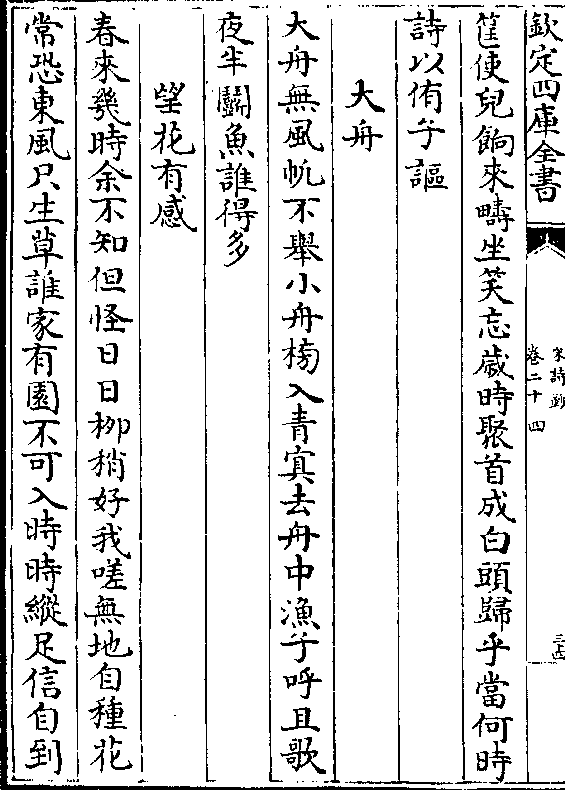 欽定四庫全書
宋詩鈔
卷二十四
筐使兒餉來疇坐笑忘歲時聚首成白頭歸乎當何時
詩以侑予謳
大舟
大舟無風帆不舉小舟榜入青冥去舟中漁子呼且歌
夜半鬭魚誰得多
望花有感
春來幾時余不知但怪日日柳梢好我嗟無地自種花
常恐東風只生草誰家有園不可入時時縱足信自到